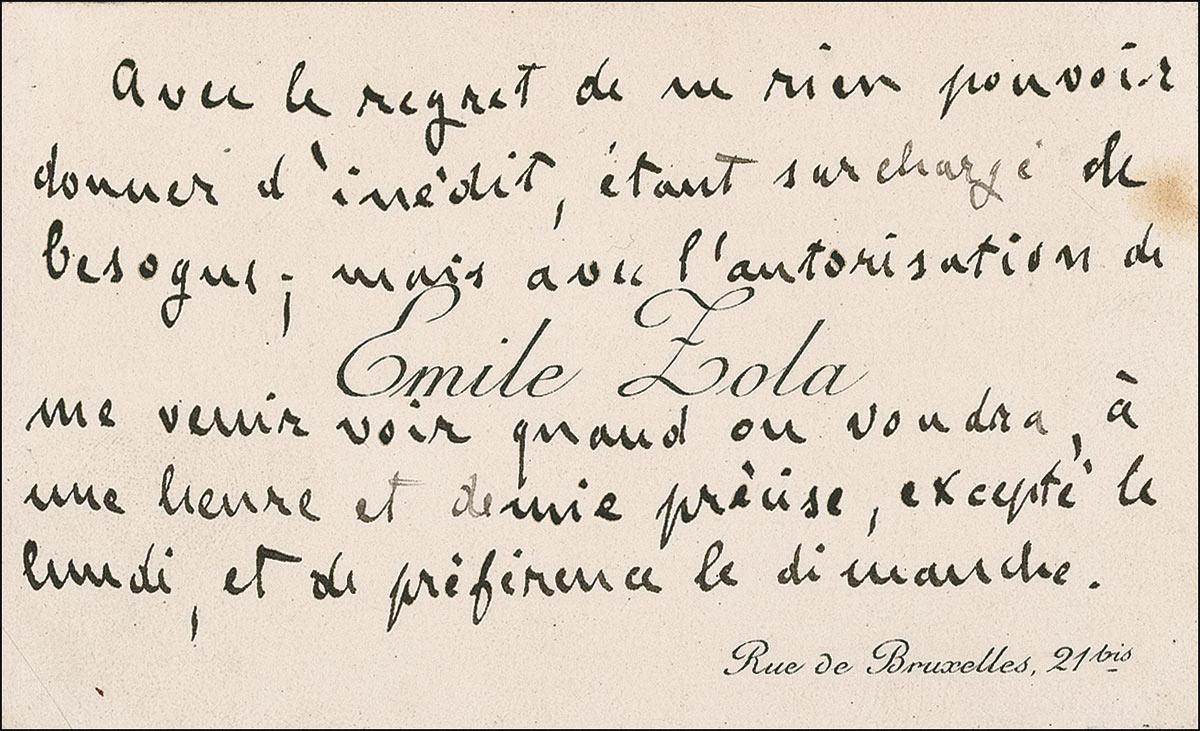 Avec le regret de ne rien pouvoir
donner d'inédit, étant surchargé de
besogne ; mais avec l'autorisation de
Emile Zola
me venir voir quand on voudra, à
une heure et demie précise, excepté le
lundi, et de préférence le dimanche.
Rue de Bruxelles, 21 bis